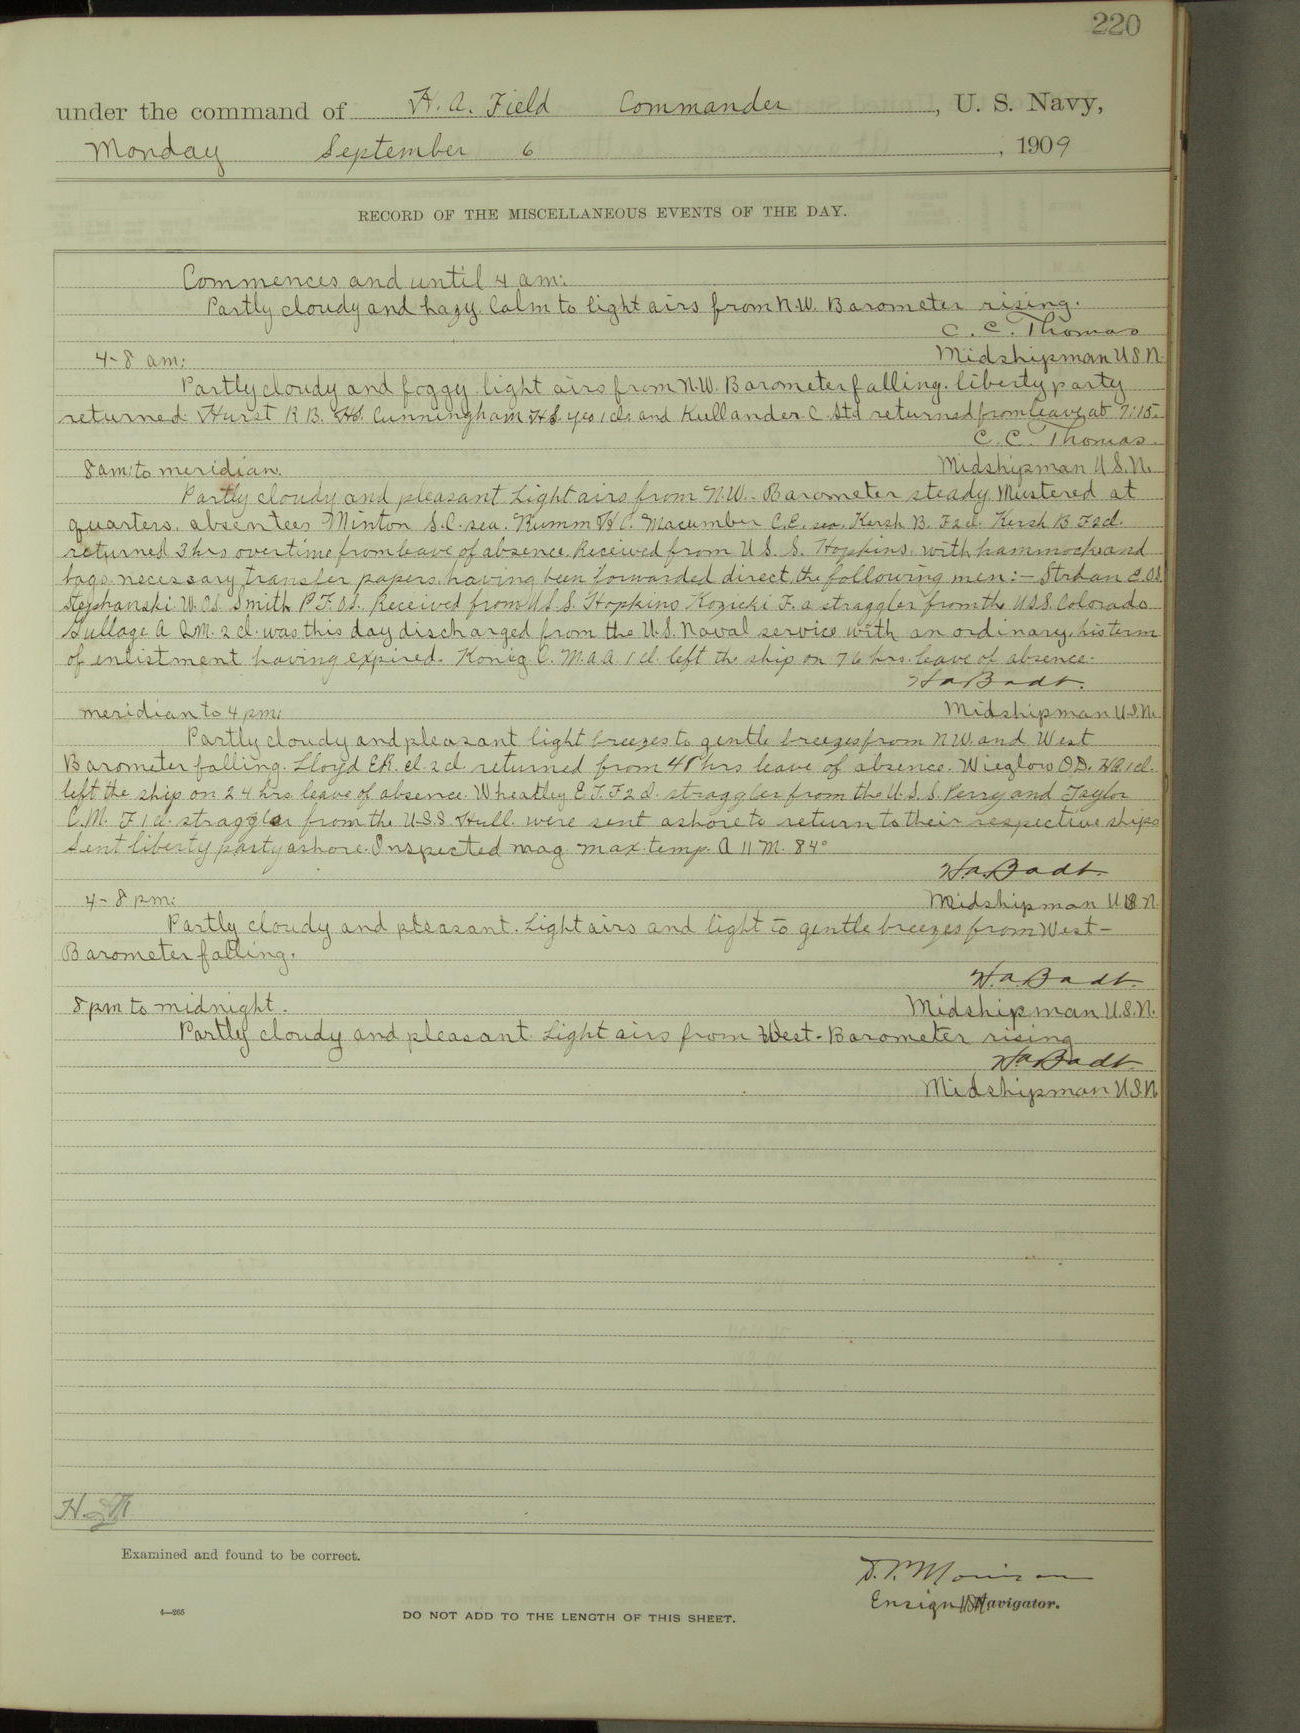 220
under the command of H. A. Field Commander, U. S. Navy,
Monday September 6, 1909
RECORD OF THE MISCELLANEOUS EVENTS OF THE DAY.
Commences and until 4 am:
Partly cloudy and hazy. Calm to light airs from N.W. Barometer rising.
C. C. Thomas
4-8 am: Midshipman U.S.N.
Partly cloudy and foggy. light airs from N.W. Barometer falling. liberty party
returned. Hurst R B. HS. Cunningham H S yeo 1 cl. and Kullander C. Std returned from leave at 7:15.
C. C. Thomas.
8 am: to meridian. Midshipman U.S.N.
Partly cloudy and pleasant. Light airs from N.W. - Barometer steady. Mustered at
quarters. absentees Minton S.C. sea. Rumm H C. Macumber C.E. sea. Kersh B. F2cl. Kersh B F2cl.
returned 3 hrs overtime from leave of absence. Received from U S. S. Hopkins. with hammocks and
bags. necessary transfer papers. having been forwarded direct. the following men:- Strhan C. OS.
Stephanski W. OS. Smith P. F. OS. Received from U S.S. Hopkins Kozicki F. a straggler from the U.S.S. Colorado
Gullage A Q.M. 2 cl. was this day discharged from the U.S. Naval service with an ordinary. his term
of enlistment having expired. Konig C. M.a.a. 1 cl. left the ship on 76 hrs. leave of absence.
H a Badt.
meridian to 4 pm: Midshipman U.S.N.
Partly cloudy and pleasant light breezes to gentle breezes from NW. and West
Barometer falling. Lloyd E.R. El. 2 cl. returned from 48 hrs leave of absence. Wieglow O.D. 1 cl.
left the ship on 24 hrs leave of absence. Wheatley E.T. F2 cl. straggler from the U.S.S. Perry and Taylor
C.M. F 1 cl. straggler from the U.S.S Hull. were sent ashore to return to their respective ships
Sent liberty party ashore. Inspected mag. max. temp. A 11 M. 84°
H. a. Badt.
4-8 pm: Midshipman U.S.N.
Partly cloudy and pleasant. Light airs and light to gentle breezes from West-
Barometer falling.
H. a Badt.
8 pm to midnight. Midshipman U.S.N.
Partly cloudy and pleasant. Light airs from West - Barometer rising
H a Badt.
Midshipman U.S.N
Examined and found to be correct.
Ensign USN Navigator.
4—265
DO NOT ADD TO THE LENGTH OF THIS SHEET.